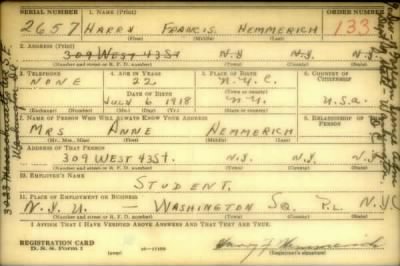 SERIAL NUMBER
1. NAME (Print)
ORDER NUMBER
2657
HARRY FRANCIS HEMMERICH
133
(First) (Middle) (Last)
2. ADDRESS (Print)
309 WEST 43 St N.Y. N.Y.
(Number and street or R. F. D. number) (Town) (County) (State)
3. TELEPHONE
4. AGE IN YEARS
5. PLACE OF BIRTH
6. COUNTRY OF CITIZENSHIP
NONE
22
N.Y.C.
DATE OF BIRTH
(Town or county)
JULY 6 1918
N.Y.
U.S.A.
(Exchange) (Number)
(Mo.) (Day) (Yr.)
(State or country)
7. NAME OF PERSON WHO WILL ALWAYS KNOW YOUR ADDRESS
8. RELATIONSHIP OF THAT PERSON
MRS ANNE HEMMERICH
(Mr., Mrs., Miss) (First) (Middle) (Last)
9. ADDRESS OF THAT PERSON
309 WEST 43 ST. N.Y. N.Y.
(Number and street or R. F. D. number) (Town) (County) (State)
10. EMPLOYER'S NAME
STUDENT.
11. PLACE OF EMPLOYMENT OR BUSINESS
N.Y.U. — WASHINGTON SQ. PL. NYC
(Number and street or R. F. D. number) (Town) (County) (State)
I AFFIRM THAT I HAVE VERIFIED ABOVE ANSWERS AND THAT THEY ARE TRUE.
REGISTRATION CARD
D. S. S. Form 1
Harry F Hemmerich
(Registrant's signature)